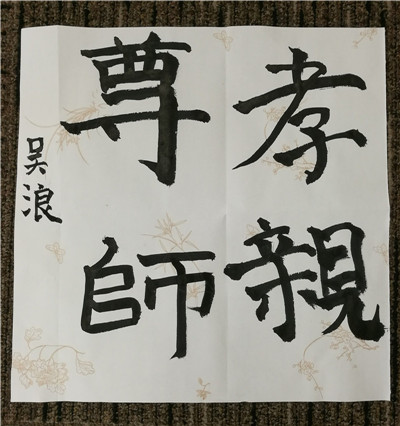 孝親
尊師
吴浪